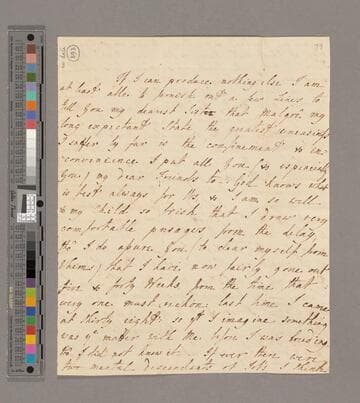 no date
(393)
79
If I can produce nothing else I am
at least able to priest out a few lines to
tell you my dearest Sister that malgré my
long expectant State the greatest uneasiness
I suffer by far is the confinement & in-
convenience I put all you (& especially
you) my dear Friends to. God knows what
is best always for Us & I am so well
& my Child so brisk that I draw very
comfortable presages from the delay
tho' I do assure you (to clear myself from
blame) that I have now fairly gone out
five & forty Weeks from the time that
every one must reckon: last time I came
at thirty eight; so yt I imagine something
was ye matter with Me before I was
tho' I did not know it. If ever there were
two mental descendants of Job's I think